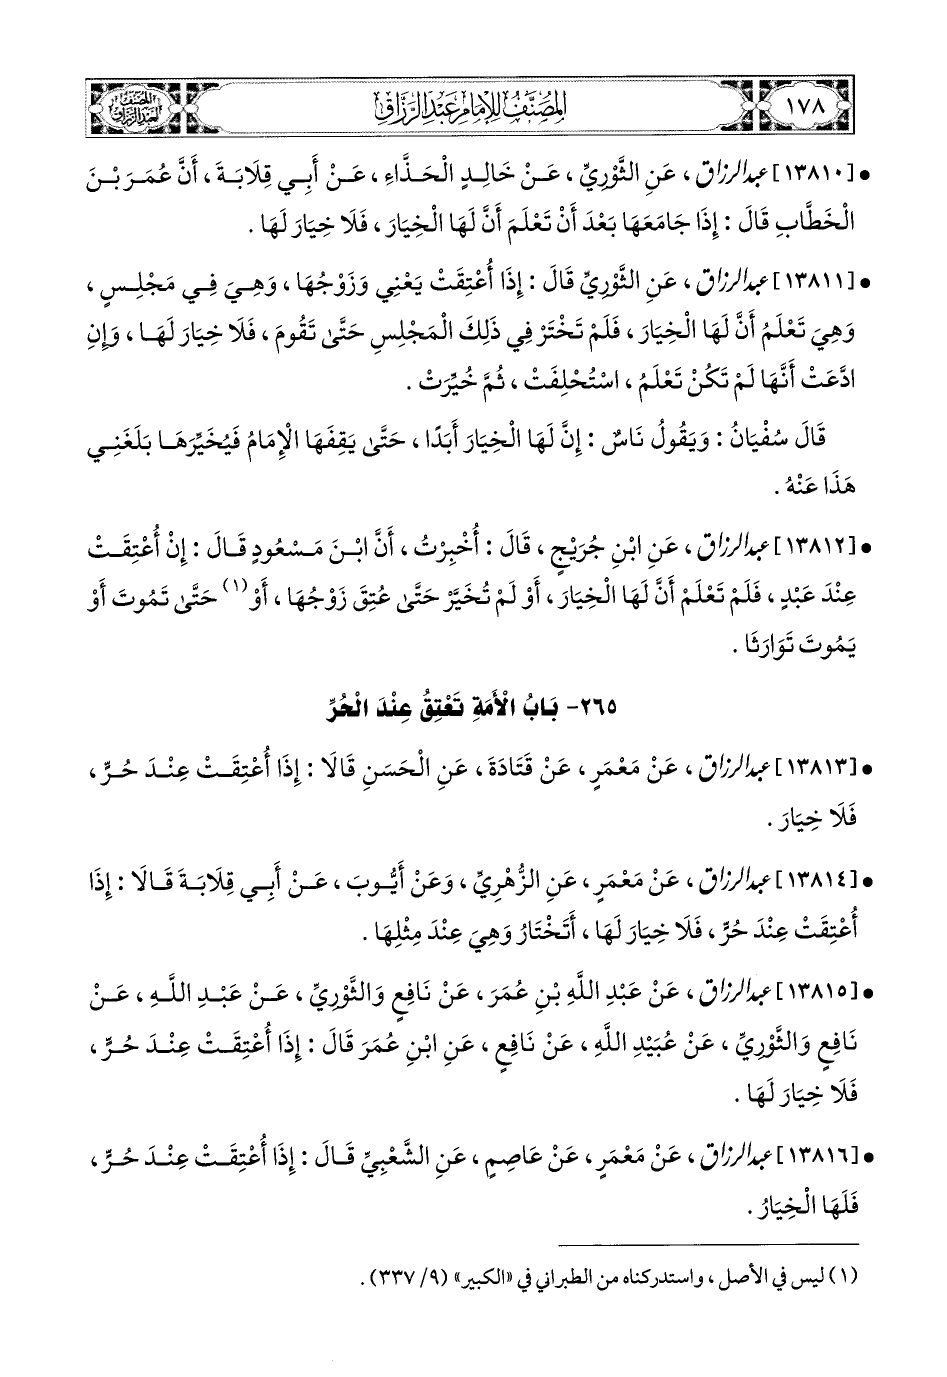 ١٧٨
المصنف للإمام عبد الرزاق
المصنف
لعبد الرزاق
• [١٣٨١٠] عبد الرزاق ، عَنِ الثَّوْرِيِّ ، عَنْ خَالِدٍ الْحَذَّاءِ ، عَنْ أَبِي قِلَابَةَ ، أَنَّ عُمَرَ بْنَ
الْخَطَّابِ قَالَ : إِذَا جَامَعَهَا بَعْدَ أَنْ تَعْلَمَ أَنَّ لَهَا الْخِيَارَ ، فَلَا خِيَارَ لَهَا .
• [١٣٨١١] عبد الرزاق ، عَنِ الثَّوْرِيِّ قَالَ : إِذَا أُعْتِقَتْ يَعْنِي وَزَوْجُهَا ، وَهِيَ فِي مَجْلِسٍ ،
وَهِيَ تَعْلَمُ أَنَّ لَهَا الْخِيَارَ ، فَلَمْ تَخْتَرْ فِي ذَلِكَ الْمَجْلِسِ حَتَّىٰ تَقُومَ ، فَلَا خِيَارَ لَهَا ، وَإِنِ
ادَّعَتْ أَنَّهَا لَمْ تَكُنْ تَعْلَمُ ، اسْتُحْلِفَتْ ، ثُمَّ خُيِّرَتْ .
قَالَ سُفْيَانُ : وَيَقُولُ نَاسٌ : إِنَّ لَهَا الْخِيَارَ أَبَدًا ، حَتَّىٰ يَقِفَهَا الْإِمَامُ فَيُخَيِّرَهَا بَلَغَنِي
هَذَا عَنْهُ .
• [١٣٨١٢] عبد الرزاق ، عَنِ ابْنِ جُرَيْجٍ ، قَالَ : أُخْبِرْتُ ، أَنَّ ابْنَ مَسْعُودٍ قَالَ : إِنْ أُعْتِقَتْ
عِنْدَ عَبْدٍ ، فَلَمْ تَعْلَمْ أَنَّ لَهَا الْخِيَارَ ، أَوْ لَمْ تُخَيَّرْ حَتَّىٰ عُتِقَ زَوْجُهَا ، أَوْ (١) حَتَّىٰ تَمُوتَ أَوْ
يَمُوتَ تَوَارَثَا .
٢٦٥- بَابُ الْأَمَةِ تَعْتِقُ عِنْدَ الْحُرِّ
• [١٣٨١٣] عبد الرزاق ، عَنْ مَعْمَرٍ ، عَنْ قَتَادَةَ ، عَنِ الْحَسَنِ قَالَا : إِذَا أُعْتِقَتْ عِنْدَ حُرٍّ ،
فَلَا خِيَارَ .
• [١٣٨١٤] عبد الرزاق ، عَنْ مَعْمَرٍ ، عَنِ الزُّهْرِيِّ ، وَعَنْ أَيُّوبَ ، عَنْ أَبِي قِلَابَةَ قَالَا : إِذَا
أُعْتِقَتْ عِنْدَ حُرٍّ ، فَلَا خِيَارَ لَهَا ، أَتَخْتَارُ وَهِيَ عِنْدَ مِثْلِهَا .
• [١٣٨١٥] عبد الرزاق ، عَنْ عَبْدِ اللَّهِ بْنِ عُمَرَ ، عَنْ نَافِعٍ وَالثَّوْرِيِّ ، عَنْ عَبْدِ اللَّهِ ، عَنْ
نَافِعٍ وَالثَّوْرِيِّ ، عَنْ عُبَيْدِ اللَّهِ ، عَنْ نَافِعٍ ، عَنِ ابْنِ عُمَرَ قَالَ : إِذَا أُعْتِقَتْ عِنْدَ حُرٍّ ،
فَلَا خِيَارَ لَهَا .
• [١٣٨١٦] عبد الرزاق ، عَنْ مَعْمَرٍ ، عَنْ عَاصِمٍ ، عَنِ الشَّعْبِيِّ قَالَ : إِذَا أُعْتِقَتْ عِنْدَ حُرٍّ ،
فَلَهَا الْخِيَارُ .
(١) ليس في الأصل ، واستدركناه من الطبراني في «الكبير» (٩/ ٣٣٧) .